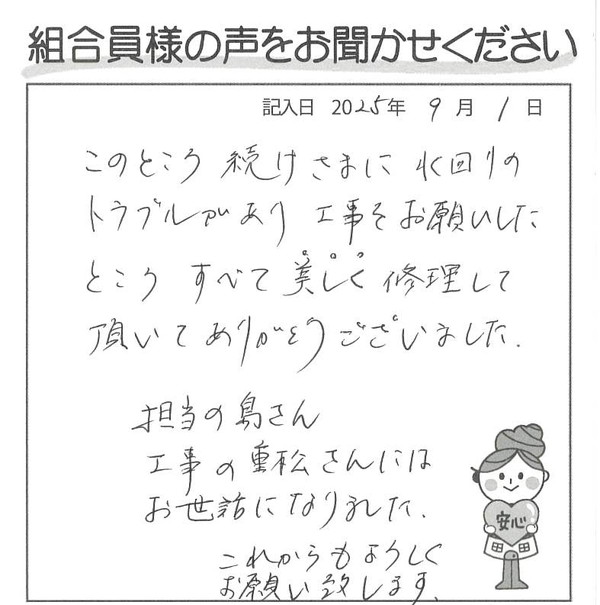 組合員様の声をお聞かせください
記入日 2025年 9月 1日
このところ 続けさまに 水回りの
トラブルがあり 工事をお願いした
ところ すべて 美しく 修理して
頂いて ありがとうございました.
担当の島さん
工事の重松さんには
お世話になりました.
安心
これからもよろしく
お願い致します.